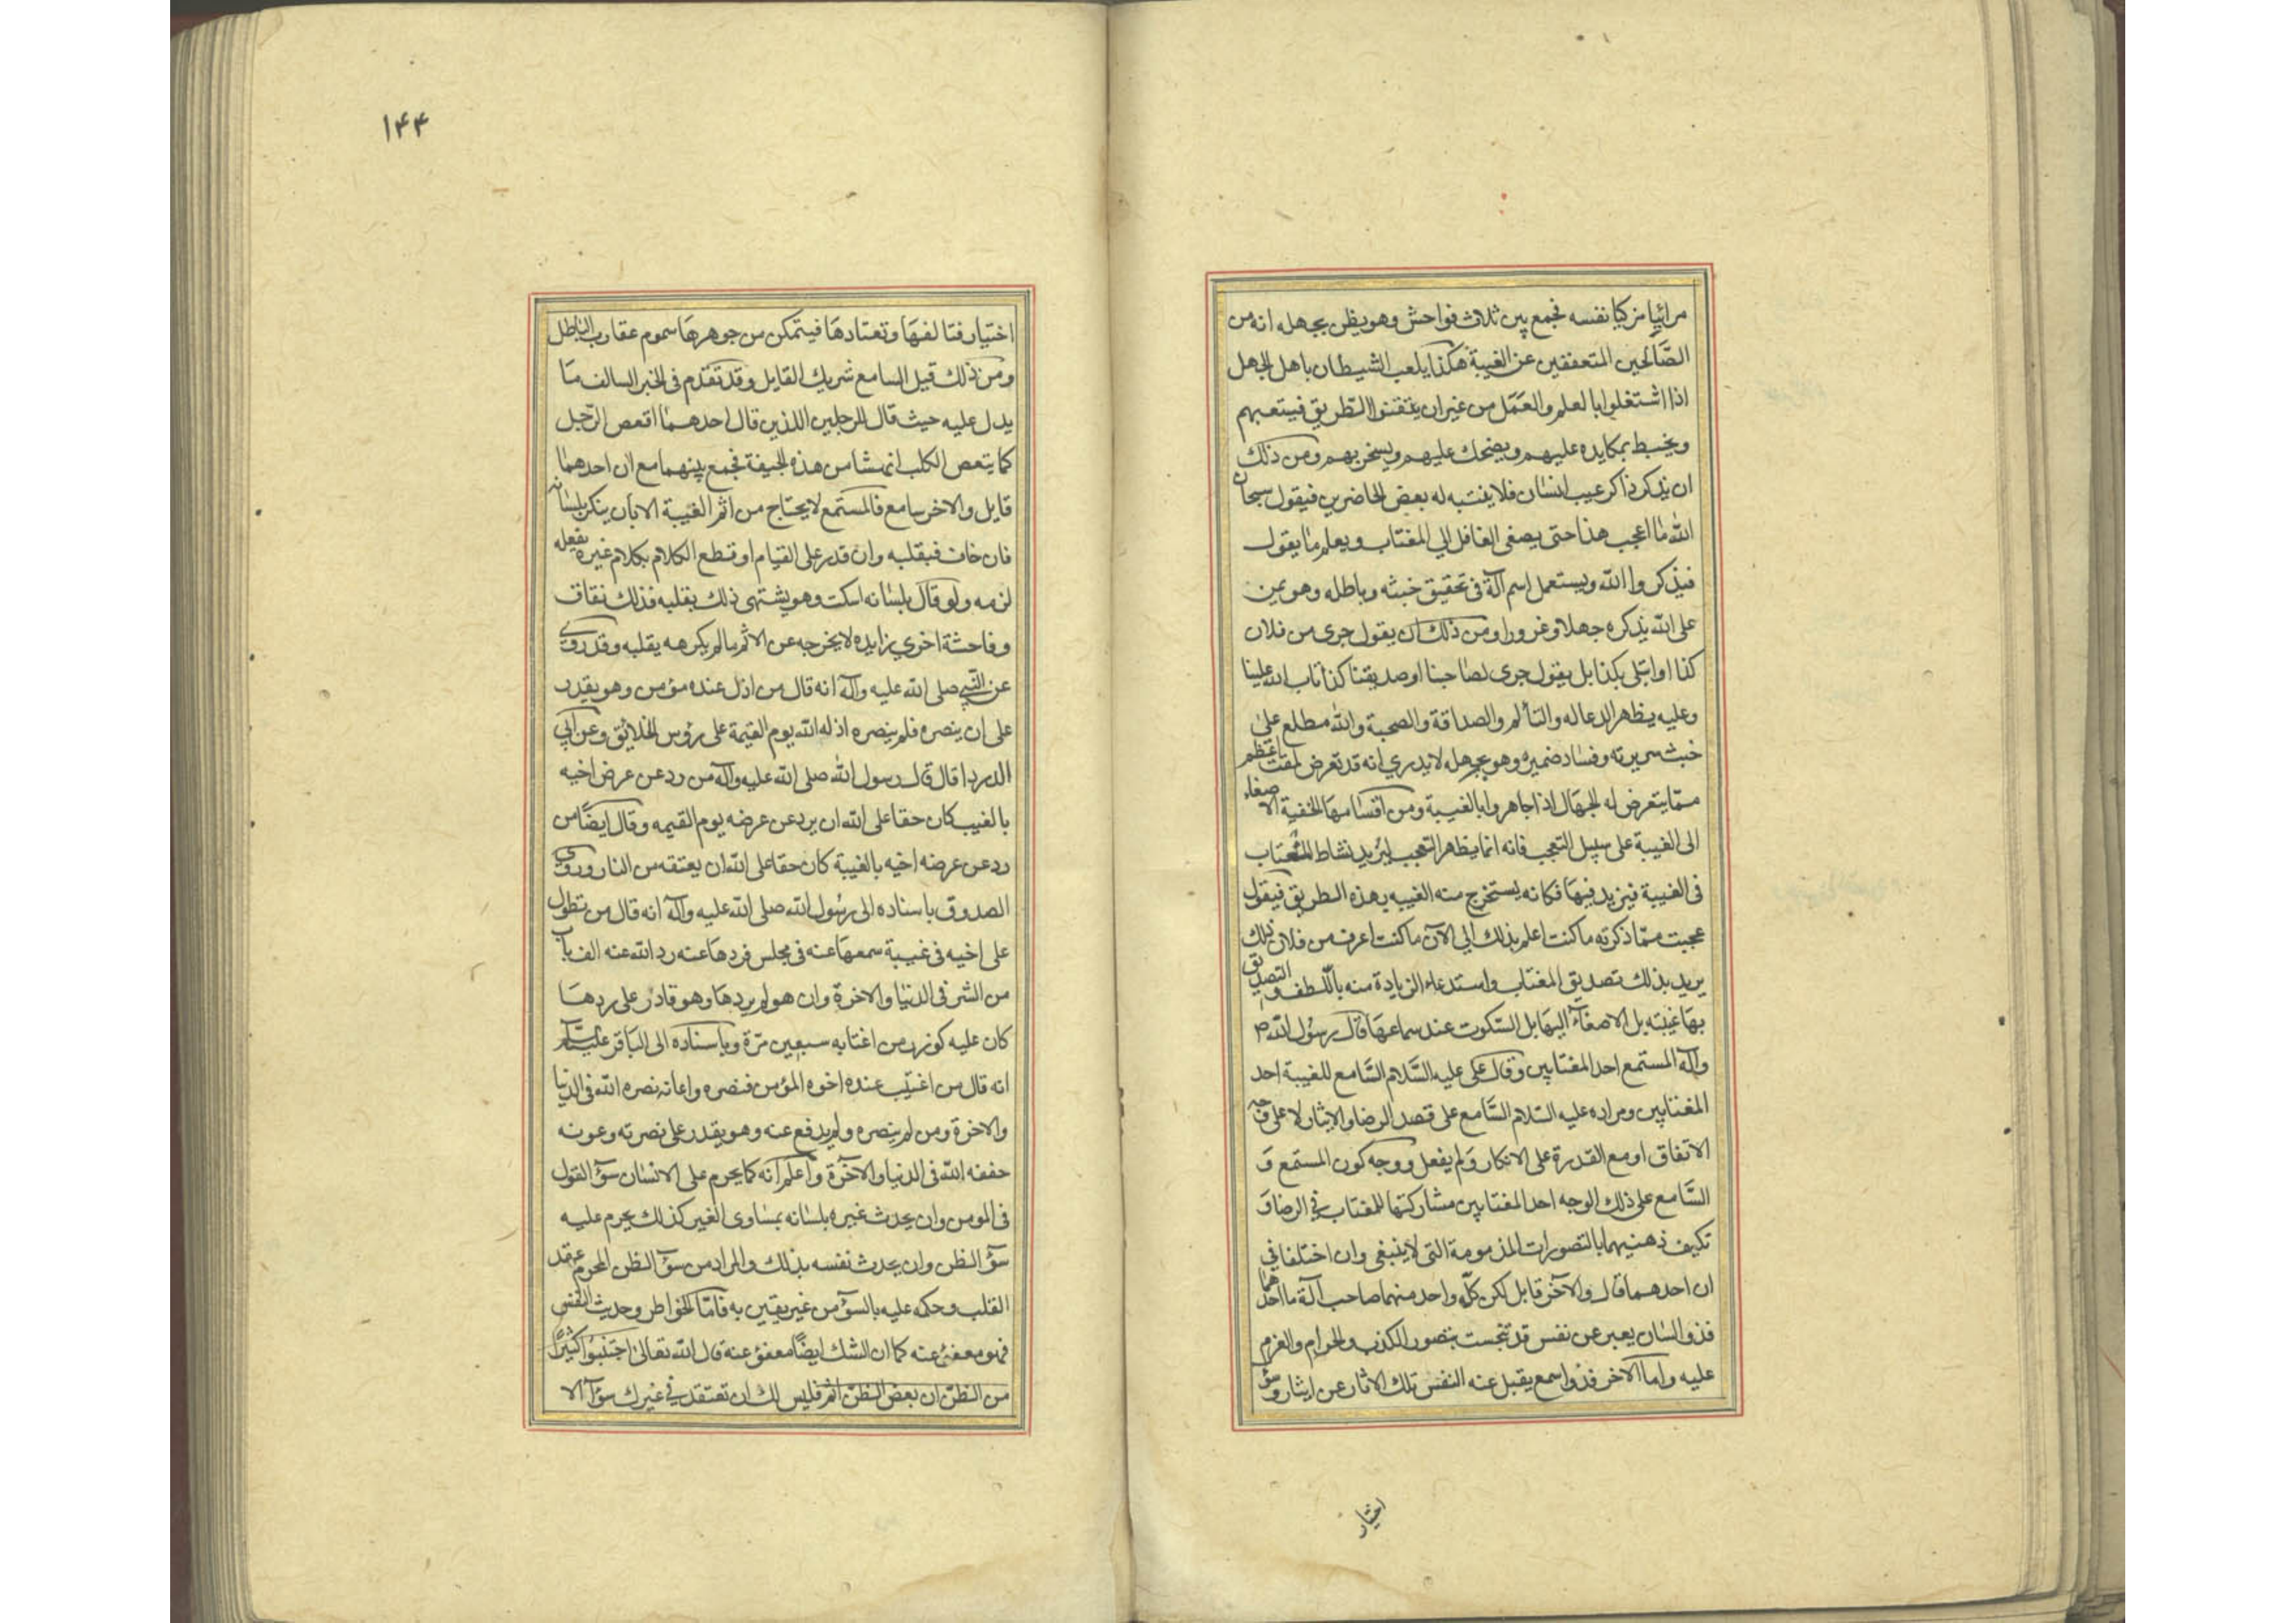 مرائيا مزكيا نفسه فجمع بين ثلاث فواحش وهو يظن بجهله انه من
الصَّالحين المتعففين عن الغيبة هكذا يلعب الشيطان باهل الجهل
اذا اشتغلوا بالعلم والعَمَل من غير ان يتقنوا الطّريق فيتعبهم
ويخبط بمكايده عليهم ويضحك عليهم ويسخر بهم ومن ذلك
ان يذكر ذاكر عيب انسٰان فلا ينتبه له بعض الحاضرين فيقول سبحان
اللّٰه مٰا اعجب هذا حتى يصغى الغافل الي المغتاب ويعلم مٰا يقول
فيذكروا اللّه ويستعمل اسم آلة فى تحقيق خبثه وباطله وهو يمن
على اللّه بذكره جهلا وغرورا ومن ذلك ان يقول جرى من فلان
كذا او ابتلى بكذا بل يقول جرى لصٰاحبنا او صديقنا كذا تاب اللّه علينا
وعليه يظهر الدعاله والتألم والصداقة والصحبة واللّه مطلع على
خبث سريرته وفسٰاد ضميره وهو بجهله لا يدري انه قد تعرض لمقت اعظم
ممّا يتعرض له الجهال اذا جاهروا بالغيبة ومن اقسٰامها الخفية الاصغاء
الى الغيبة على سبيل التعجب فانه انما يظهر التعجب ليزيد نشاط المغتاب
فى الغيبة فيزيد فيهَا فكانه يستخرج منه الغيبه بهذه الطريق فيقول
عجبت ممّا ذكرته ما كنت اعلم بذلك الي الآن ما كنت اعرف من فلان ذلك
يريد بذلك تصديق المغتاب واستدعاء الزيادة منه باللّطف والتصديق
بهَا غيبَته بل الاصغآء اليهَا بل السّكوت عند سماعهَا قال رسُول اللّه ص
وآله المستمع احد المغتابين وقال على عليه السَّلام السَّامع للغيبة احد
المغتابين ومراده عليه السّلام السَّامع على قصد الرضا والايثار لا على وجه
الاتفاق او مع القدرة على الانكار وَلم يفعل ووجه كون المستمع وَ
السَّامع على ذلك الوجه احد المغتابين مشاركتها للمغتاب في الرضا وَ
تكيف ذهنيهما بالتصورات المذمومة التى لا ينبغى وان اختلفا في
ان احدهما قال والآخر قابل لكن كلّ واحد منهما صاحب آلة ما احدهما
فذو السٰان يعبر عن نفس قد تنجست بتصور الكذب والحرام والعزم
عليه واما الآخر فذو اسمع يقبل عنه النفس تلك الاثار عن ايثار وسؤ
اختيار
١۴۴
اختيار فتالفهَا وتعتادهَا فيتمكن من جوهرهَا سموم عقارب الباطل
ومن ذلك قيل السامع شريك القايل وقد تقدم فى الخبر السالف مَا
يدل عليه حيث قال للرجلين اللذين قال احدهما اقعص الرّجل
كما يقعص الكلب انهشا من هذه الجيفة فجمع بينهما مع ان احدهما
قايل والاخر سامع فالمستمع لا يحتاج من اثم الغيبة الا بان ينكر بلسٰانه
فان خاف فبقلبه وان قدر على القيام او قطع الكلام بكلام غيره يفعله
لزمه ولو قال بلسٰانه اسكت وهو يشتهى ذلك بقلبه فذلك نفاق
وفاحشة اخري زايده لا يخرجه عن الاثم ما لم يكرهه بقلبه وقد روي
عن النّبي صلى اللّه عليه وآله انه قال من اذل عنده مؤمن وهو يقدر
على ان ينصره فلم ينصره اذله اللّه يوم القيمة على رؤس الخلائق وعن ابي
الدردا قال قال رسول اللّه صلى اللّه عليه وآله من رد عن عرض اخيه
بالغيب كان حقا على اللّه ان يرد عن عرضه يوم القيمه وقال ايضًا من
رد عن عرضه اخيه بالغيبة كان حقا على اللّه ان يعتقه من النار وروي
الصدوق باسناده الى رسُول اللّه صلى اللّه عليه وآله انه قال من تطول
على اخيه فى غيبة سمعهَا عنه فى مجلس فردهَا عنه رد اللّه عنه الف باب
من الشر فى الدنيا والاخرة وان هو لم يردهَا وهو قادر على ردهَا
كان عليه كوزر من اغتابه سبعين مرّة وباسناده الى البَاقر عليه السّلام
انه قال من اغتيب عنده اخوه المؤمن فنصره واعانه نصره اللّه فى الدنيا
والاخرة ومن لم ينصره ولم يدفع عنه وهو يقدر على نصرته وعونه
حففه اللّه فى الدنيا والآخرة واعلم انه كما يحرم على الانسٰان سؤ القول
فى المومن وان يحدث غيره بلسٰانه بمسٰاوى الغير كذلك يحرم عليه
سؤ الظن وان يحدث نفسه بذلك والمراد من سؤ الظن المحرم عقد
القلب وحكمه عليه بالسوٓء من غير يقين به فامّا الخواطر وحديث النفس
فهو معفوٌ عنه كما ان الشك ايضًا معفوٌ عنه قال اللّه تعالىٰ اجتنبُوا كثيرًا
من الظنّ ان بعض الظنّ اثم فليس لك ان تعتقد في غيرك سوٓءا الا